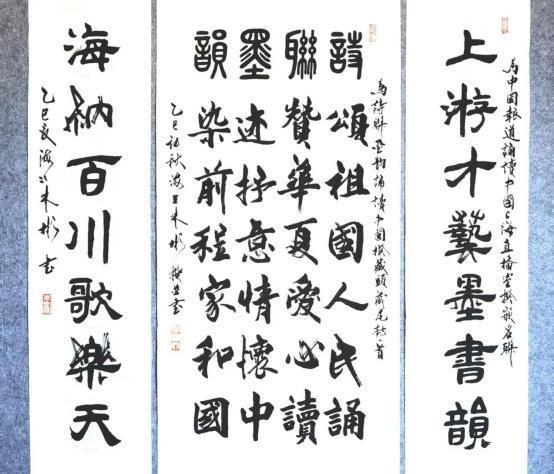 為中國報道誦讀中國上海直播室撰嵌名聯
上游才藝墨書韻
為詩聯墨韵誦讀中國撰藏頭嵌尾
詩頌祖國人民誦
聯贊華夏愛心讀
墨迹抒意情懷中
韻染前程家和國
乙巳初秋海上朱彬撰並書
海納百川歌樂天
乙巳夏海上朱彬書